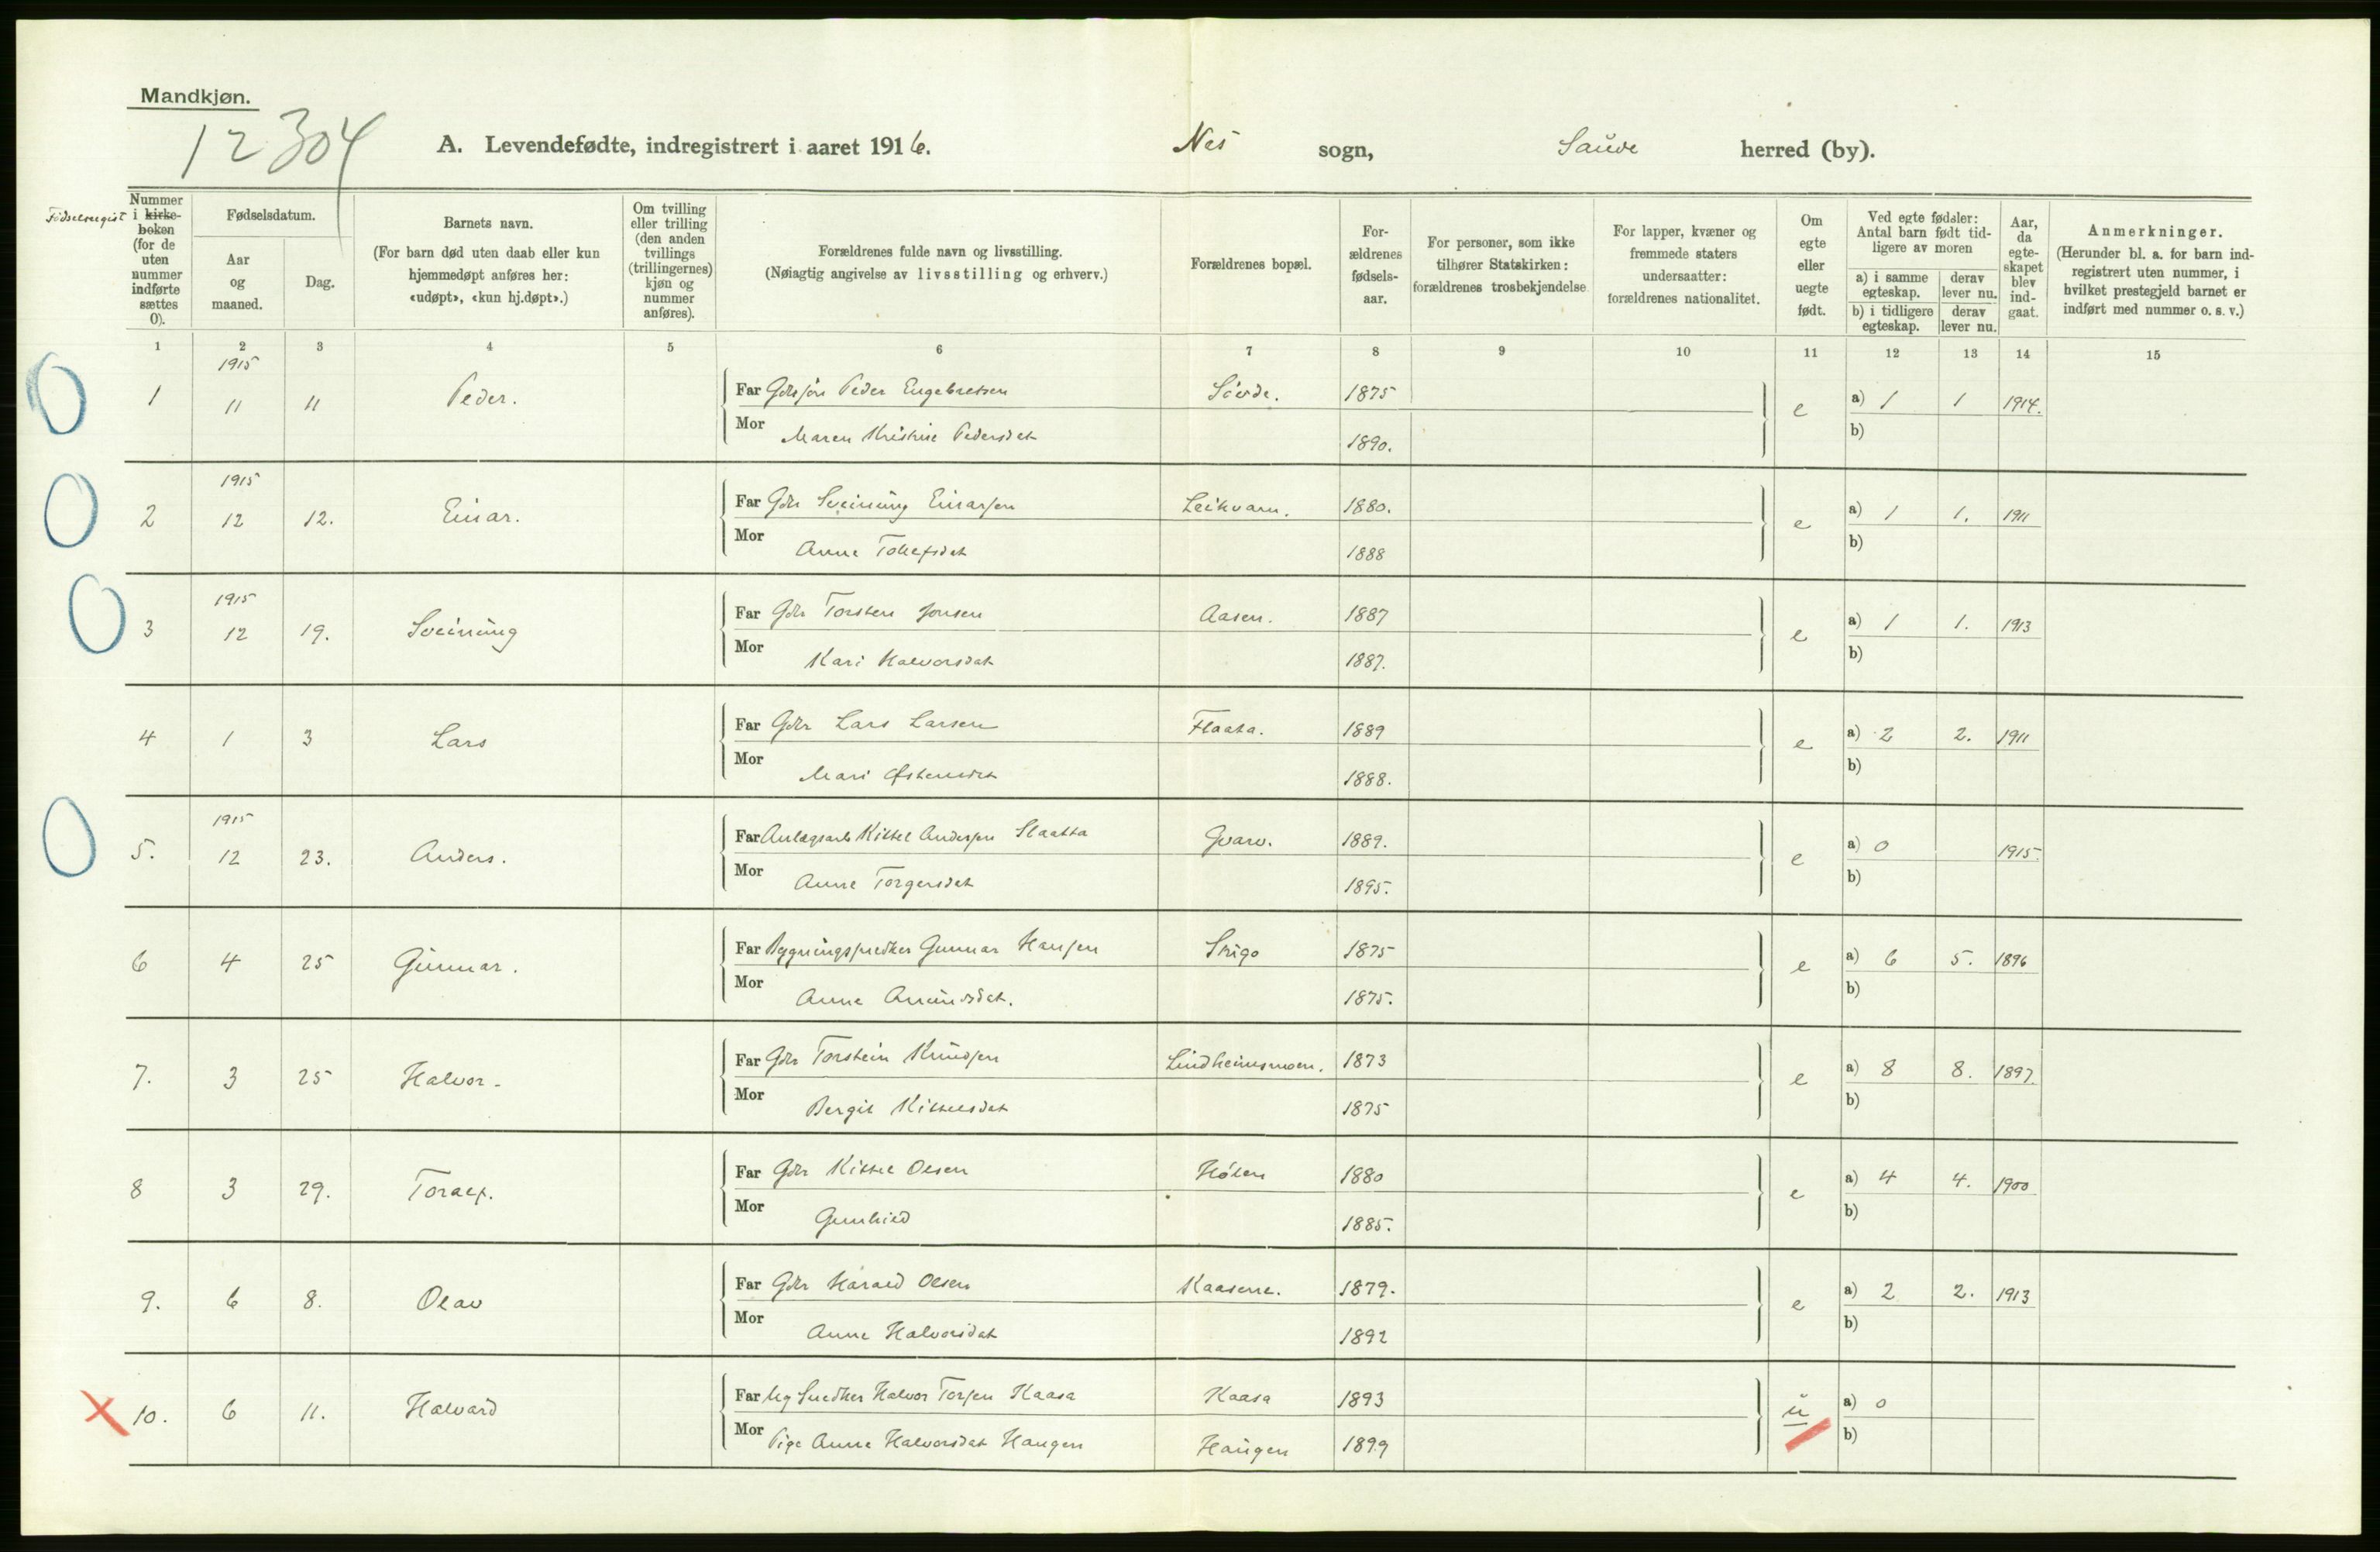 Mandkjøn.
12304
A. Levendefødte, indregistrert i aaret 1916. Nes sogn, Saude herred (by).
Fødselsregist
Nummer i kirkeboken (for de uten nummer indførte sættes 0).
Fødselsdatum.
Aar og maaned.
Dag.
Barnets navn.
(For barn død uten daab eller kun hjemmedøpt anføres her: «udøpt», «kun hj.døpt».)
Om tvilling eller trilling (den anden tvillings (trillingernes) kjøn og nummer anføres).
Forældrenes fulde navn og livsstilling.
(Nøiagtig angivelse av livsstilling og erhverv.)
Forældrenes bopæl.
Forældrenes fødselsaar.
For personer, som ikke tilhører Statskirken: forældrenes trosbekjendelse
For lapper, kvæner og fremmede staters undersaatter: forældrenes nationalitet.
Om egte eller uegte født.
Ved egte fødsler: Antal barn født tidligere av moren
a) i samme egteskap.
derav lever nu.
b) i tidligere egteskap.
derav lever nu.
Aar, da egteskapet blev indgaat.
Anmerkninger.
(Herunder bl. a. for barn indregistrert uten nummer, i hvilket prestegjeld barnet er indført med nummer o. s. v.)
1 2 3 4 5 6 7 8 9 10 11 12 13 14 15
1915
1 11 11 Peder. Far Peder Engebretsen Sövde. 1875 e a) 1 1 1914.
Mor Maren Kristine Pedersdat 1890. b)
1915
2 12 12. Einar. Far Gdr Sveinung Einarsen Leikvam. 1880. e a) 1 1. 1911
Mor Anne Tollefsdat 1888 b)
1915
3 12 19. Sveinung Far Gdr Torsten Jonsen Aasen. 1887 e a) 1 1. 1913
Mor Kari Halvorsdat 1887. b)
4 1 3 Lars Far Gdr Lars Larsen Flaata. 1889 e a) 2 2. 1911
Mor Mari Østensdat 1888. b)
1915
5. 12 23. Anders. Far Anlægsarb Kittel Andersen Slaatta Gvarv. 1889. e a) 0 1915.
Mor Anne Torgersdat 1895. b)
6 4 25 Gunnar. Far Bygningssnedker Gunnar Hansen Strigo 1875 e a) 6 5. 1896
Mor Anne Amundsdat. 1875. b)
7. 3 25 Halvor. Far Gdr Torstein Knudsen Lindheimsmoen. 1873 e a) 8 8. 1897.
Mor Bergit Kittelsdat 1875 b)
8 3 29. Toralf. Far Gdr Kittel Olsen Hólen 1880 e a) 4 4. 1900
Mor Gunhild 1885. b)
9. 6 8. Olav Far Gdr Harald Olsen Kaasene. 1879. e a) 2 2. 1913
Mor Anne Halvorsdat 1892 b)
10. 6 11. Halvard Far Ug Snedker Halvor Torsen Kaasa Kaasa 1893 u a) 0
Mor Pige Anne Halvorsdat Haugen Haugen 1899 b)